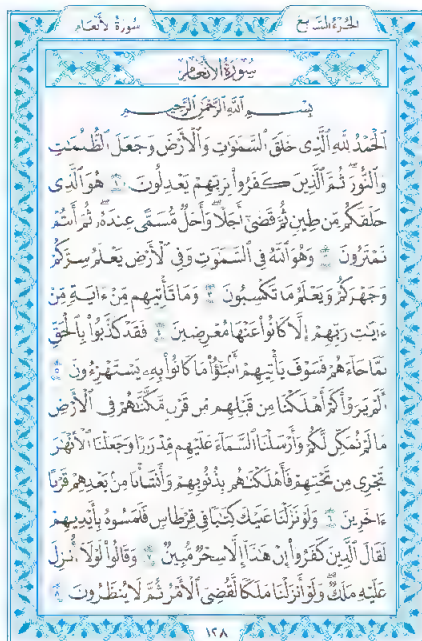 الجزء السابع
سورة الأنعام
سورة الأنعام
بِسْمِ اللَّهِ الرَّحْمَٰنِ الرَّحِيمِ
الْحَمْدُ لِلَّهِ الَّذِي خَلَقَ السَّمَٰوَٰتِ وَالْأَرْضَ وَجَعَلَ الظُّلُمَٰتِ
وَالنُّورَ ۖ ثُمَّ الَّذِينَ كَفَرُوا بِرَبِّهِمْ يَعْدِلُونَ ١ هُوَ الَّذِي
خَلَقَكُم مِّن طِينٍ ثُمَّ قَضَىٰ أَجَلًا ۖ وَأَجَلٌ مُّسَمًّى عِندَهُ ۖ ثُمَّ أَنتُمْ
تَمْتَرُونَ ٢ وَهُوَ اللَّهُ فِي السَّمَٰوَٰتِ وَفِي الْأَرْضِ يَعْلَمُ سِرَّكُمْ
وَجَهْرَكُمْ وَيَعْلَمُ مَا تَكْسِبُونَ ٣ وَمَا تَأْتِيهِم مِّنْ ءَايَةٍ مِّنْ
ءَايَٰتِ رَبِّهِمْ إِلَّا كَانُوا عَنْهَا مُعْرِضِينَ ٤ فَقَدْ كَذَّبُوا بِالْحَقِّ
لَمَّا جَاءَهُمْ فَسَوْفَ يَأْتِيهِمْ أَنۢبَٰٓؤُا مَا كَانُوا بِهِ يَسْتَهْزِءُونَ ٥
أَلَمْ يَرَوْا كَمْ أَهْلَكْنَا مِن قَبْلِهِم مِّن قَرْنٍ مَّكَّنَّٰهُمْ فِي الْأَرْضِ
مَا لَمْ نُمَكِّن لَّكُمْ وَأَرْسَلْنَا السَّمَاءَ عَلَيْهِم مِّدْرَارًا وَجَعَلْنَا الْأَنْهَٰرَ
تَجْرِي مِن تَحْتِهِمْ فَأَهْلَكْنَٰهُم بِذُنُوبِهِمْ وَأَنشَأْنَا مِنۢ بَعْدِهِمْ قَرْنًا
ءَاخَرِينَ ٦ وَلَوْ نَزَّلْنَا عَلَيْكَ كِتَٰبًا فِي قِرْطَاسٍ فَلَمَسُوهُ بِأَيْدِيهِمْ
لَقَالَ الَّذِينَ كَفَرُوا إِنْ هَٰذَا إِلَّا سِحْرٌ مُّبِينٌ ٧ وَقَالُوا لَوْلَا أُنزِلَ
عَلَيْهِ مَلَكٌ ۖ وَلَوْ أَنزَلْنَا مَلَكًا لَّقُضِيَ الْأَمْرُ ثُمَّ لَا يُنظَرُونَ ٨
١٢٨